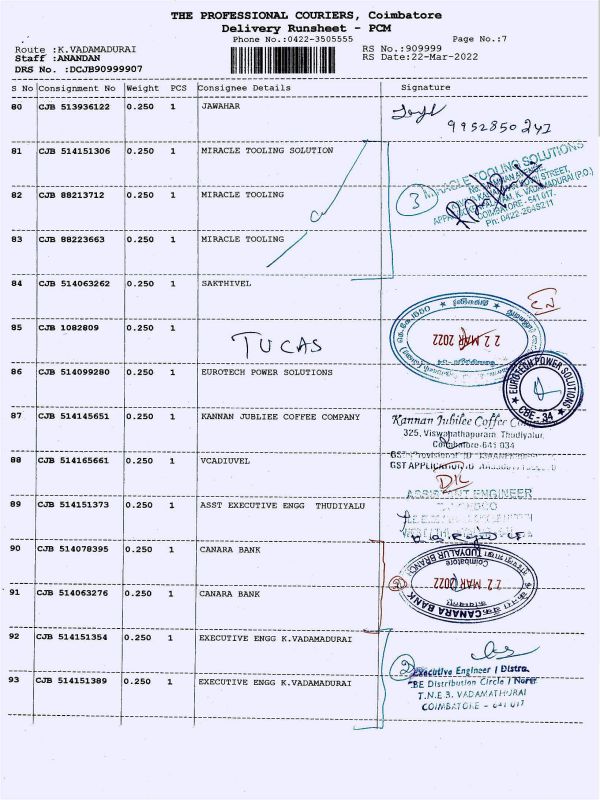 THE PROFESSIONAL COURIERS, Coimbatore
Delivery Runsheet - PCM
Phone No.:0422-3505555 Page No.:7
Route :K.VADAMADURAI RS No.:909999
Staff :ANANDAN RS Date:22-Mar-2022
DRS No. :DCJB90999907
S No Consignment No Weight PCS Consignee Details Signature
80 CJB 513936122 0.250 1 JAWAHAR
9952850241
81 CJB 514151306 0.250 1 MIRACLE TOOLING SOLUTION
82 CJB 88213712 0.250 1 MIRACLE TOOLING
83 CJB 88223663 0.250 1 MIRACLE TOOLING
3
MIRACLE TOOLING SOLUTIONS
STREET,
K. VADAMADURAI (P.O.)
COIMBATORE - 641 017.
Ph: 0422-2648211
84 CJB 514063262 0.250 1 SAKTHIVEL
85 CJB 1082809 0.250 1
TUCAS
22 MAR 2022
86 CJB 514099280 0.250 1 EUROTECH POWER SOLUTIONS
EUROTECH POWER SOLUTIONS
CBE-34
87 CJB 514145651 0.250 1 KANNAN JUBLIEE COFFEE COMPANY
Kannan Jubilee Coffee
325, Viswanathapuram, Thudiyalur,
Coimbatore-641 034
88 CJB 514165661 0.250 1 VCADIUVEL
GST APPLICATION ID
89 CJB 514151373 0.250 1 ASST EXECUTIVE ENGG THUDIYALU
ASSISTANT ENGINEER
90 CJB 514078395 0.250 1 CANARA BANK
91 CJB 514063276 0.250 1 CANARA BANK
22 MAR 2022
Coimbatore
CANARA BANK
92 CJB 514151354 0.250 1 EXECUTIVE ENGG K.VADAMADURAI
93 CJB 514151389 0.250 1 EXECUTIVE ENGG K.VADAMADURAI
2
Executive Engineer / Distra.
BE Distribution Circle / North
T.N.E.B. VADAMATHURAI
COIMBATORE - 641 017